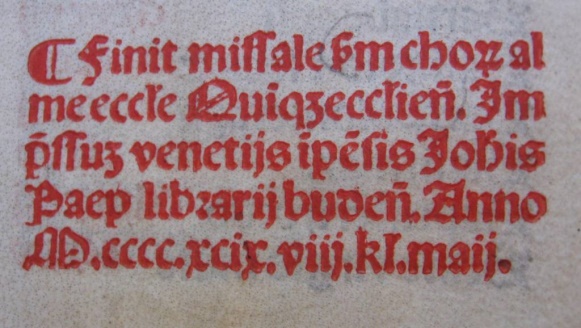 ¶ Finit missale s̄m choꝝ al
me eccƚe Quiq̄ꝫeccƚien̄. Im
p̄ssuꝫ venetijs īpēsis Joh̄is
Paep librarij buden̄. Anno
M.cccc.xcix.viij.kƚ.maij.